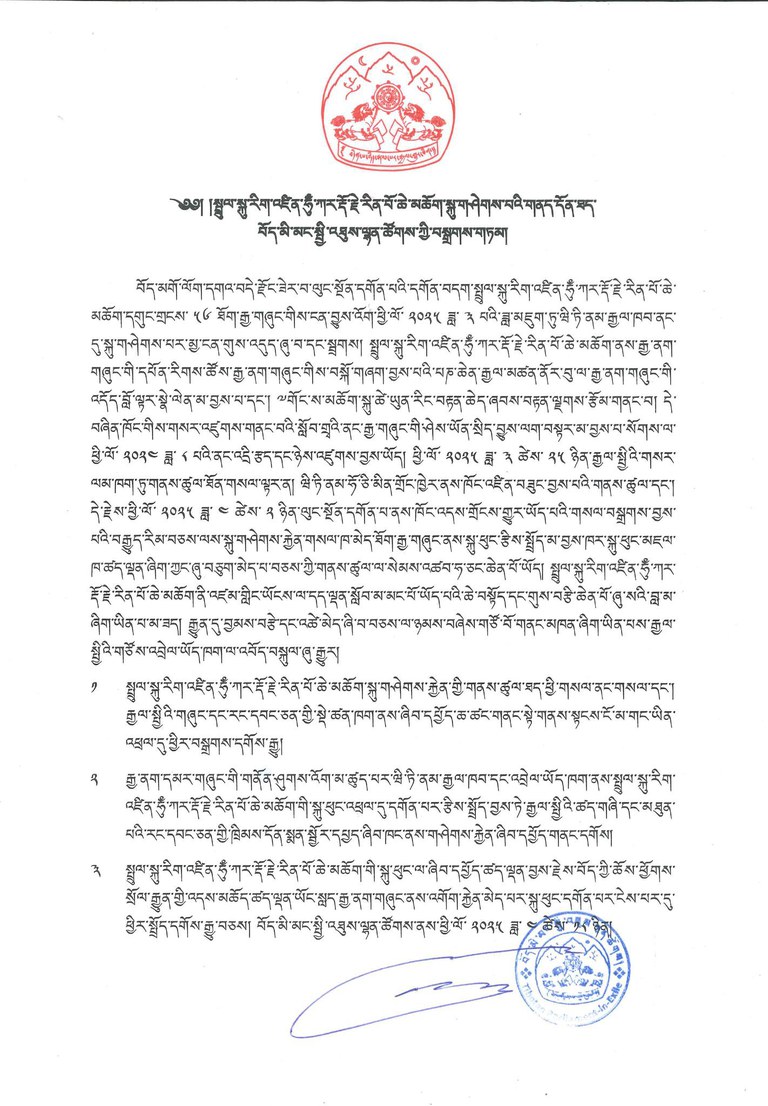 ༄༅། །སྤྲུལ་སྐུ་རིག་འཛིན་ཧཱུྃ་ཀར་རྡོ་རྗེ་རིན་པོ་ཆེ་མཆོག་སྐུ་གཤེགས་པའི་གནད་དོན་ཐད་
བོད་མི་མང་སྤྱི་འཐུས་ལྷན་ཚོགས་ཀྱི་བསྒྲགས་གཏམ།
བོད་མགོ་ལོག་དགའ་བདེ་རྫོང་ཟེར་བ་ལུང་སྔོན་དགོན་པའི་དགོན་བདག་སྤྲུལ་སྐུ་རིག་འཛིན་ཧཱུྃ་ཀར་རྡོ་རྗེ་རིན་པོ་ཆེ་
མཆོག་དགུང་གྲངས་ ༥༦ ཐོག་རྒྱ་གཞུང་གིས་ངན་བྱུས་འོག་ཕྱི་ལོ་ ༢༠༢༥ ཟླ་ ༣ པའི་ཟླ་མཇུག་ཏུ་ཝི་ཏི་ནམ་རྒྱལ་ཁབ་ནང་
དུ་སྐུ་གཤེགས་པར་མྱ་ངན་གུས་འདུད་ཞུ་བ་དང་སྦྲགས། སྤྲུལ་སྐུ་རིག་འཛིན་ཧཱུྃ་ཀར་རྡོ་རྗེ་རིན་པོ་ཆེ་མཆོག་ནས་རྒྱ་ནག་
གཞུང་གི་དཔོན་རིགས་ཚོས་རྒྱ་ནག་གཞུང་གིས་བསྐོ་གཞག་བྱས་པའི་པཎ་ཆེན་རྒྱལ་མཚན་ནོར་བུ་ལ་རྒྱ་ནག་གཞུང་གི་
འདོད་བློ་ལྟར་སྣེ་ལེན་མ་བྱས་པ་དང་། ༸གོང་ས་མཆོག་སྐུ་ཚེ་ཡུན་རིང་བརྟན་ཆེད་ཞབས་བརྟན་ལྗགས་རྩོམ་གནང་བ། དེ་
བཞིན་ཁོང་གིས་གསར་འཛུགས་གནང་བའི་སློབ་གྲྭའི་ནང་རྒྱ་གཞུང་གི་ཤེས་ཡོན་སྲིད་བྱུས་ལག་བསྟར་མ་བྱས་པ་སོགས་ལ་
ཕྱི་ལོ་ ༢༠༢༤ ཟླ་ ༨ པའི་ནང་འདྲི་རྩད་དང་ཉེས་འཛུགས་བྱས་ཡོད། ཕྱི་ལོ་ ༢༠༢༥ ཟླ་ ༣ ཚེས་ ༢༥ ཉིན་རྒྱལ་སྤྱིའི་གསར་
ལམ་ཁག་ཏུ་གནས་ཚུལ་ཐོན་གསལ་ལྟར་ན། ཝི་ཏི་ནམ་ཧོ་ཅི་མིན་གྲོང་ཁྱེར་ནས་ཁོང་འཛིན་བཟུང་བྱས་པའི་གནས་ཚུལ་དང་།
དེ་རྗེས་ཕྱི་ལོ་ ༢༠༢༥ ཟླ་ ༤ ཚེས་ ༢ ཉིན་ལུང་སྔོན་དགོན་པ་ནས་ཁོང་འདས་གྲོངས་གྱུར་ཡོད་པའི་གསལ་བསྒྲགས་བྱས་
པའི་བརྒྱུད་རིམ་བཅས་ལས་སྐུ་གཤེགས་རྐྱེན་གསལ་ཁ་མེད་ཐོག་རྒྱ་གཞུང་ནས་སྐུ་ཕུང་རྩིས་སྤྲོད་མ་བྱས་ཁར་སྐུ་ཕུང་མཇལ་
ཁ་ཚད་ལྡན་ཞིག་ཀྱང་ཞུ་བཅུག་མེད་པ་བཅས་ཀྱི་གནས་ཚུལ་ལ་སེམས་འཚབ་ཧ་ཅང་ཆེན་པོ་ཡོད། སྤྲུལ་སྐུ་རིག་འཛིན་ཧཱུྃ་ཀར་
རྡོ་རྗེ་རིན་པོ་ཆེ་མཆོག་ནི་འཛམ་གླིང་ཡོངས་ལ་དད་ལྡན་སློབ་མ་མང་པོ་ཡོད་པའི་ཆེ་བསྟོད་དང་གུས་བརྩི་ཆེན་པོ་ཞུ་སའི་བླ་མ་
ཞིག་ཡིན་པ་མ་ཟད། རྒྱུན་དུ་བྱམས་བརྩེ་དང་འཚེ་མེད་ཞི་བ་བཅས་ལ་ཉམས་བཞེས་གཙོ་བོ་གནང་མཁན་ཞིག་ཡིན་པས་རྒྱལ་
སྤྱིའི་གཙོས་འབྲེལ་ཡོད་ཁག་ལ་འབོད་བསྐུལ་ཞུ་རྒྱུར།
༡ སྤྲུལ་སྐུ་རིག་འཛིན་ཧཱུྃ་ཀར་རྡོ་རྗེ་རིན་པོ་ཆེ་མཆོག་སྐུ་གཤེགས་རྐྱེན་གྱི་གནས་ཚུལ་ཐད་ཕྱི་གསལ་ནང་གསལ་དང་།
རྒྱལ་སྤྱིའི་གཞུང་དང་རང་དབང་ཅན་གྱི་སྡེ་ཚན་ཁག་ནས་ཞིབ་དཔྱོད་ཆ་ཚང་གནང་སྟེ་གནས་སྟངས་ངོ་མ་གང་ཡིན་
འཕྲལ་དུ་ཕྱིར་བསྒྲགས་དགོས་རྒྱུ།
༢ རྒྱ་ནག་དམར་གཞུང་གི་གནོན་ཤུགས་འོག་མ་ཚུད་པར་ཝི་ཏི་ནམ་རྒྱལ་ཁབ་དང་འབྲེལ་ཡོད་ཁག་ནས་སྤྲུལ་སྐུ་རིག་
འཛིན་ཧཱུྃ་ཀར་རྡོ་རྗེ་རིན་པོ་ཆེ་མཆོག་གི་སྐུ་ཕུང་འཕྲལ་དུ་དགོན་པར་རྩིས་སྤྲོད་བྱས་ཏེ་རྒྱལ་སྤྱིའི་ཚད་གཞི་དང་མཐུན་
པའི་རང་དབང་ཅན་གྱི་ཁྲིམས་དོན་སྨན་སྦྱོར་དཔྱད་ཞིབ་ཁང་ནས་གཤེགས་རྐྱེན་ཞིབ་དཔྱོད་གནང་དགོས།
༣ སྤྲུལ་སྐུ་རིག་འཛིན་ཧཱུྃ་ཀར་རྡོ་རྗེ་རིན་པོ་ཆེ་མཆོག་གི་སྐུ་ཕུང་ལ་ཞིབ་དཔྱོད་ཚད་ལྡན་བྱས་རྗེས་བོད་ཀྱི་ཆོས་ཕྱོགས་
སྲོལ་རྒྱུན་གྱི་འདས་མཆོད་ཚད་ལྡན་ཡོང་སླད་རྒྱ་ནག་གཞུང་ནས་འགོག་རྐྱེན་མེད་པར་སྐུ་ཕུང་དགོན་པར་ངེས་པར་དུ་
ཕྱིར་སྤྲོད་དགོས་རྒྱུ་བཅས། བོད་མི་མང་སྤྱི་འཐུས་ལྷན་ཚོགས་ནས་ཕྱི་ལོ་ ༢༠༢༥ ཟླ་ ༤ ཚེས་ ༡༨ ཉིན།
Tibetan Parliament-in-Exile